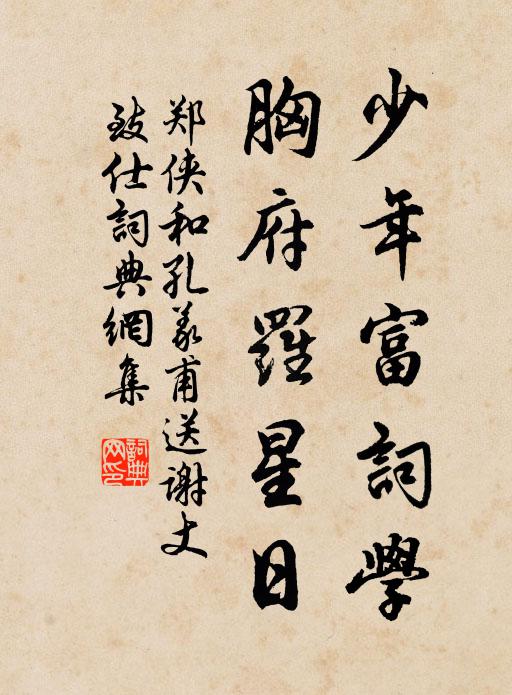 少年富詞學
胸府羅星日
郑侠和孔义甫送谢丈
致仕詞典網集
詞典網印